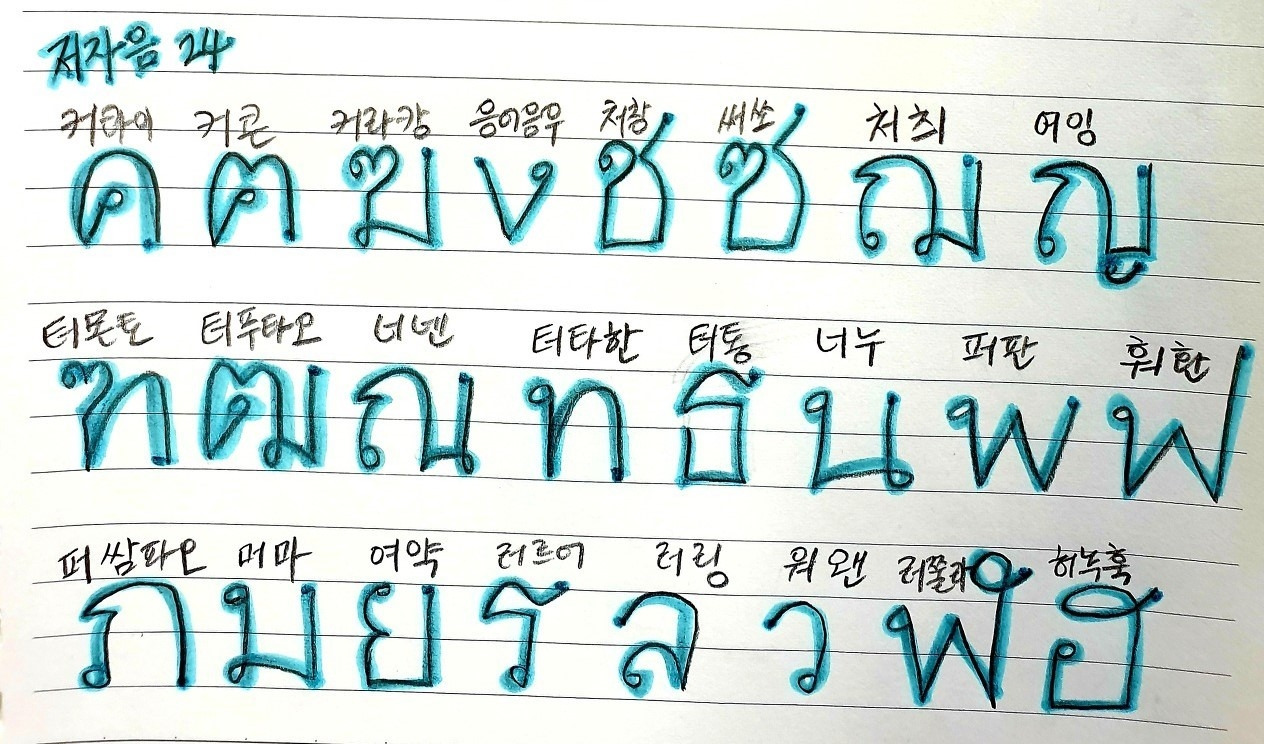 저자음 24
커콰이 커콘 커라캉 응어응우 처창 써쏘 처최 여잉
ค ฅ ฆ ง ช ซ ฌ ญ
터몬토 터푸타오 너넨 터타한 터통 너누 퍼판 훠환
ฑ ฒ ณ ท ธ น พ ฟ
퍼쌈파오 머마 여약 러르어 러링 워왠 러쭐라 허녹훅
ภ ม ย ร ล ว ฬ ฮ